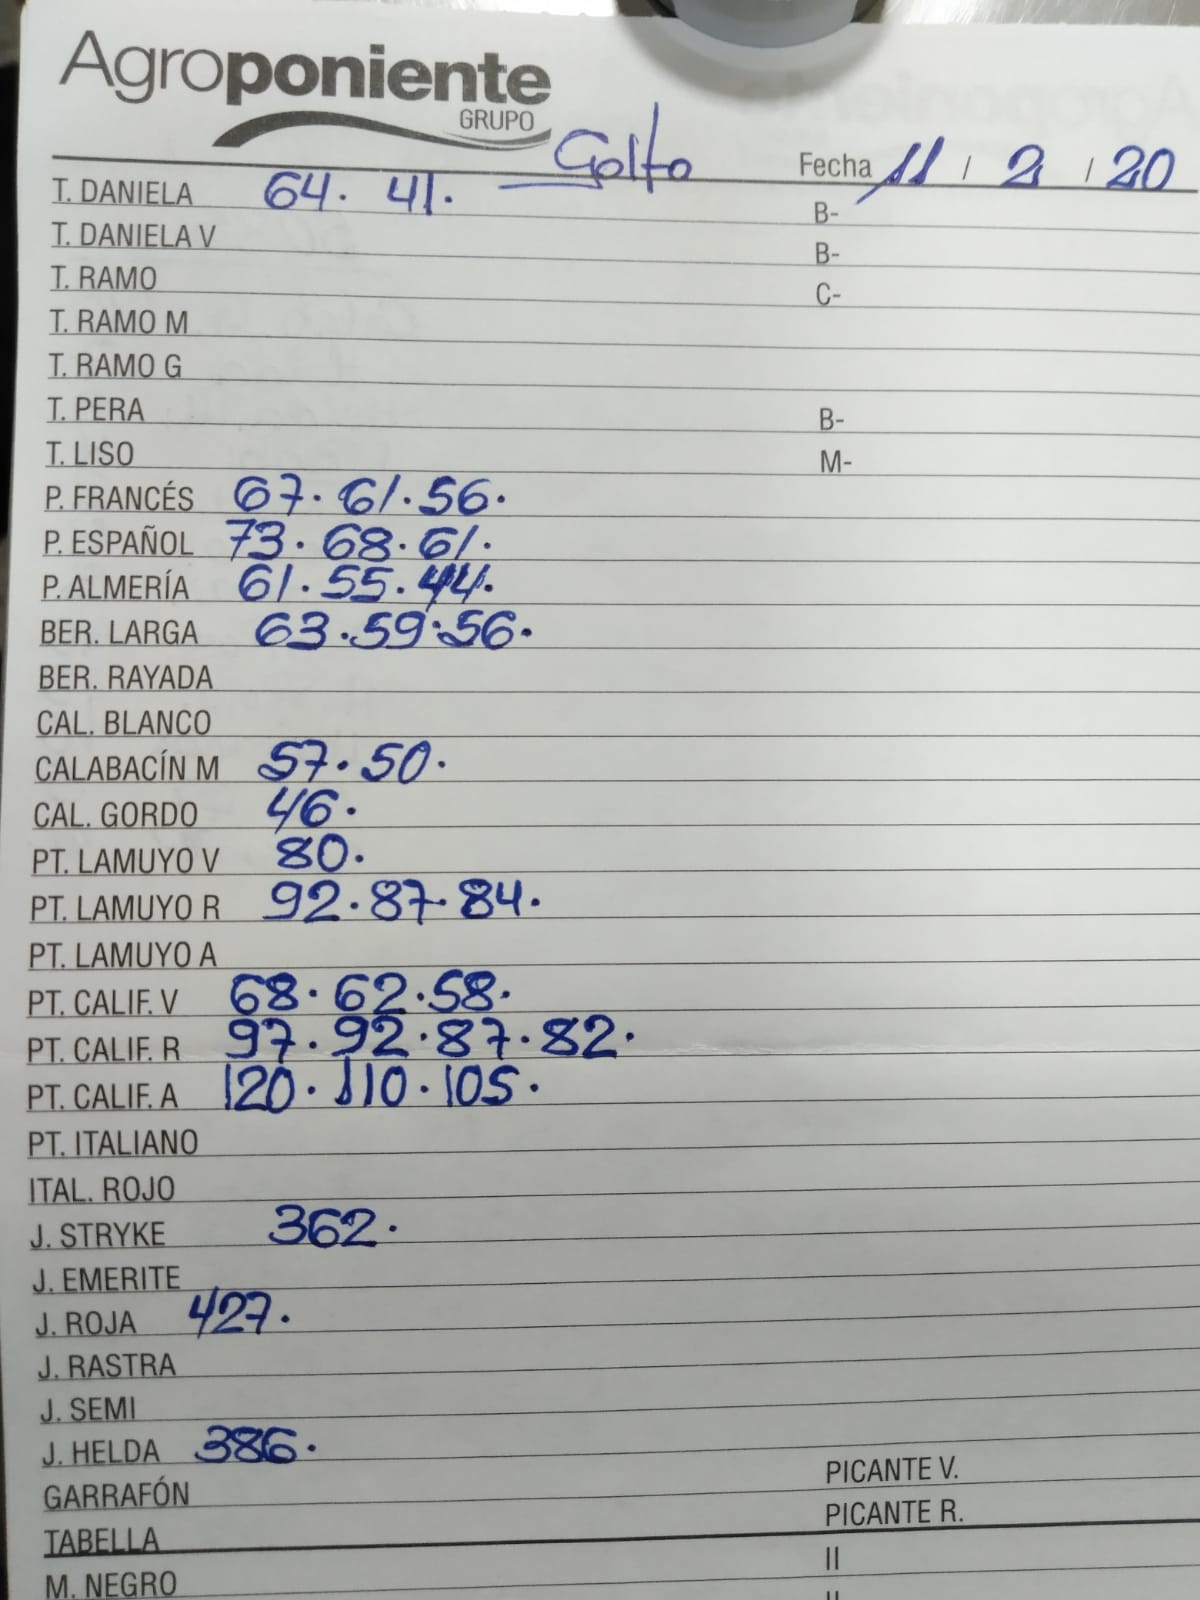 Agroponiente
GRUPO
Golfo
Fecha 11 / 2 / 20
T. DANIELA 64. 41. B-
T. DANIELA V B-
T. RAMO C-
T. RAMO M
T. RAMO G
T. PERA B-
T. LISO M-
P. FRANCÉS 67. 61. 56.
P. ESPAÑOL 73. 68. 61.
P. ALMERÍA 61. 55. 44.
BER. LARGA 63. 59. 56.
BER. RAYADA
CAL. BLANCO
CALABACÍN M 57. 50.
CAL. GORDO 46.
PT. LAMUYO V 80.
PT. LAMUYO R 92. 87. 84.
PT. LAMUYO A
PT. CALIF. V 68. 62. 58.
PT. CALIF. R 97. 92. 87. 82.
PT. CALIF. A 120. 110. 105.
PT. ITALIANO
ITAL. ROJO
J. STRYKE 362.
J. EMERITE
J. ROJA 427.
J. RASTRA
J. SEMI
J. HELDA 386.
GARRAFÓN PICANTE V.
TABELLA PICANTE R.
M. NEGRO II